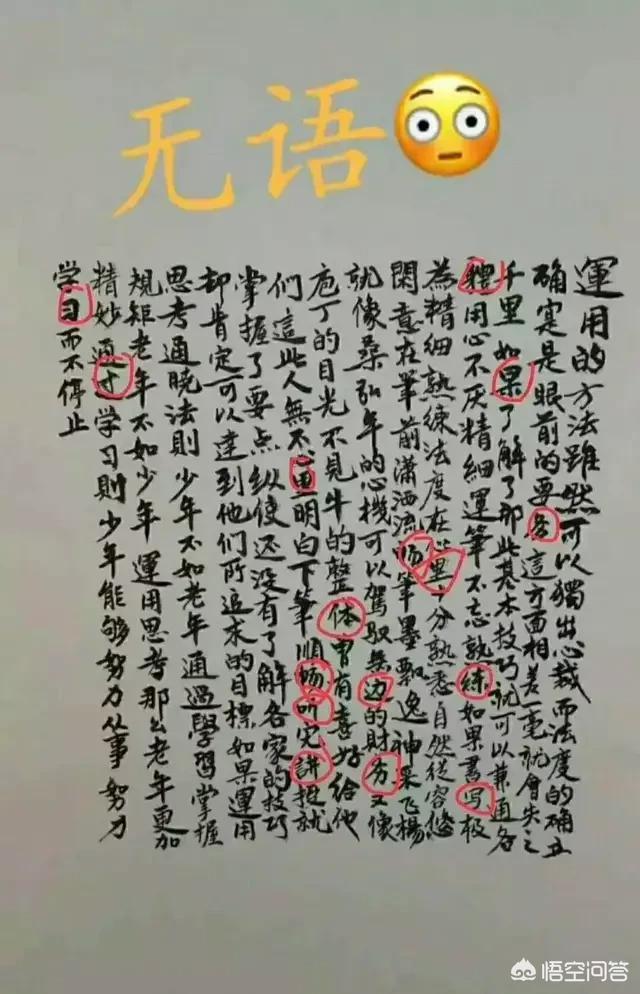 无语
運用的方法雖然可以獨出心裁而法度的确立
确寔是眼前的要务這方面相差一毫就會失之
千里如果了解了那些基本技巧就可以兼通各
種用心不厌精细運筆不忘熟練如果書写极
為精細熟練法度在心里十分熟悉自然從容悠
閑意在筆前瀟洒流畅筆墨飘逸神采飞楊
就像桑弘年的心機可以駕馭無边的財务又像
庖丁的目光不見牛的整体曾有喜好给他
们這些人無不明白下筆順畅听完講授就
掌握了要点纵使还没有了解各家的技巧
却肯定可以達到他们所追求的目標如果運用
思考通曉法則少年不如老年通過學習掌握
規矩老年不如少年運用思考那么老年更加
精妙通过学习則少年能够努力从事努力
学习而不停止
悟空问答